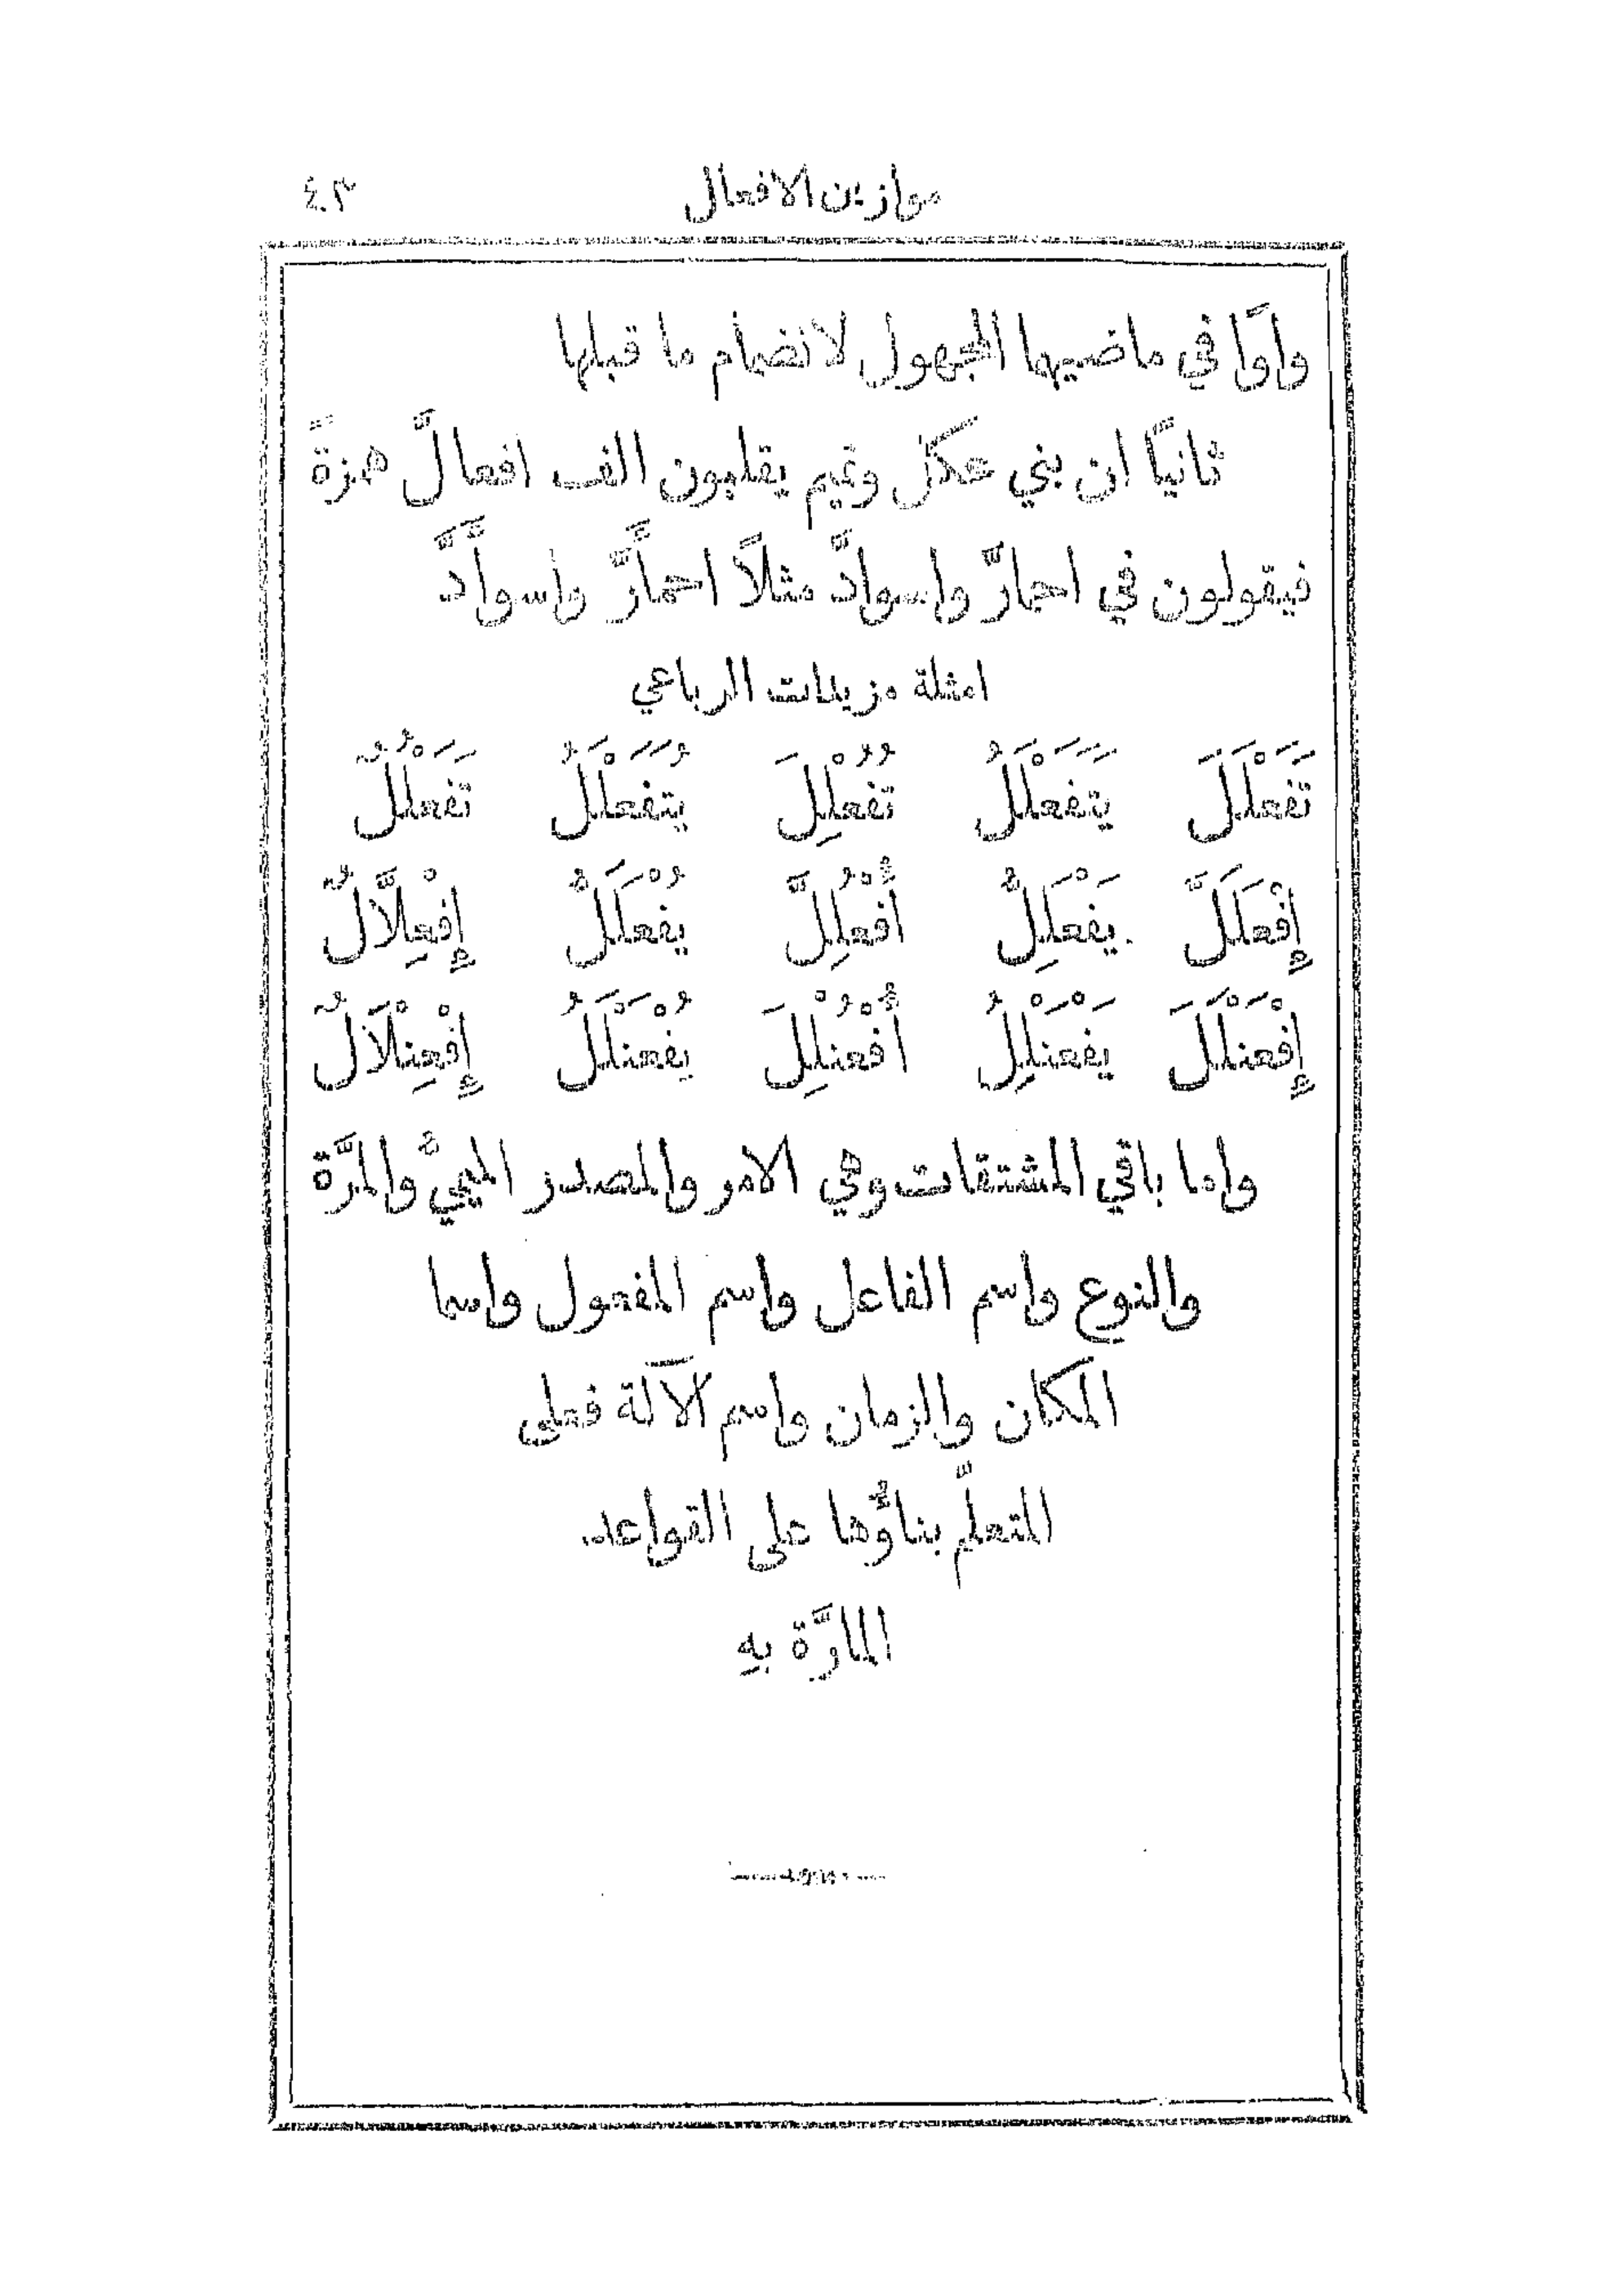 موازين الافعال ٤٣
واوًا في ماضيهما المجهول لانضمام ما قبلها
ثانيًا ان بني عكل وتميم يقلبون الف افعالَّ همزةً
فيقولون في احمارَّ واسوادَّ مثلاً احمأَرَّ واسوأَدَّ
امثلة مزيدات الرباعي
تَفَعْلَلَ يَتَفَعْلَلُ تُفُعْلِلَ يُتَفَعْلَلُ تَفَعْلُلٌ
إِفْعَلَلَّ يَفْعَلِلُّ أُفْعُلِلَّ يُفْعَلَلُّ إِفْعِلَّالٌ
إِفْعَنْلَلَ يَفْعَنْلِلُ أُفْعُنْلِلَ يُفْعَنْلَلُ إِفْعِنْلَالٌ
واما باقي المشتقات وهي الامر والمصدر الميميُّ والمرَّة
والنوع واسم الفاعل واسم المفعول واسما
المكان والزمان واسم الآلة فعلى
المتعلّم بناؤُها على القواعد
المارَّة بهِ